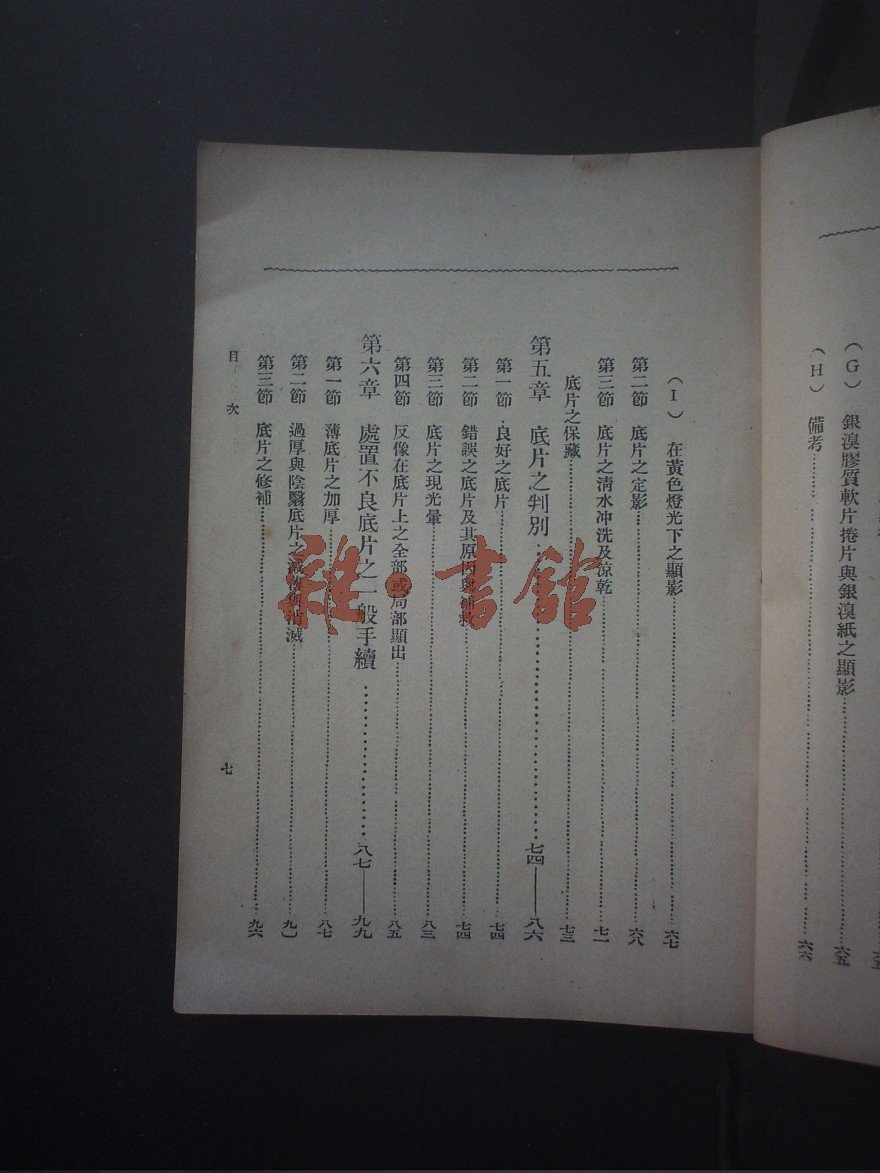 （G） 銀溴膠質軟片捲片與銀溴紙之顯影……六五
（H） 備考……六六
（I） 在黃色燈光下之顯影……六七
第二節 底片之定影……六八
第三節 底片之清水冲洗及涼乾……七一
底片之保藏……七三
第五章 底片之判別……七四——八六
第一節 良好之底片……七四
第二節 錯誤之底片及其原因與補救……七四
第三節 底片之現光暈……八三
第四節 反像在底片上之全部或局部顯出……八五
第六章 處置不良底片之一般手續……八七——九九
第一節 薄底片之加厚……八七
第二節 過厚與陰翳底片之減薄與消滅……九一
第三節 底片之修補……九六
目 次
七
雜·書館